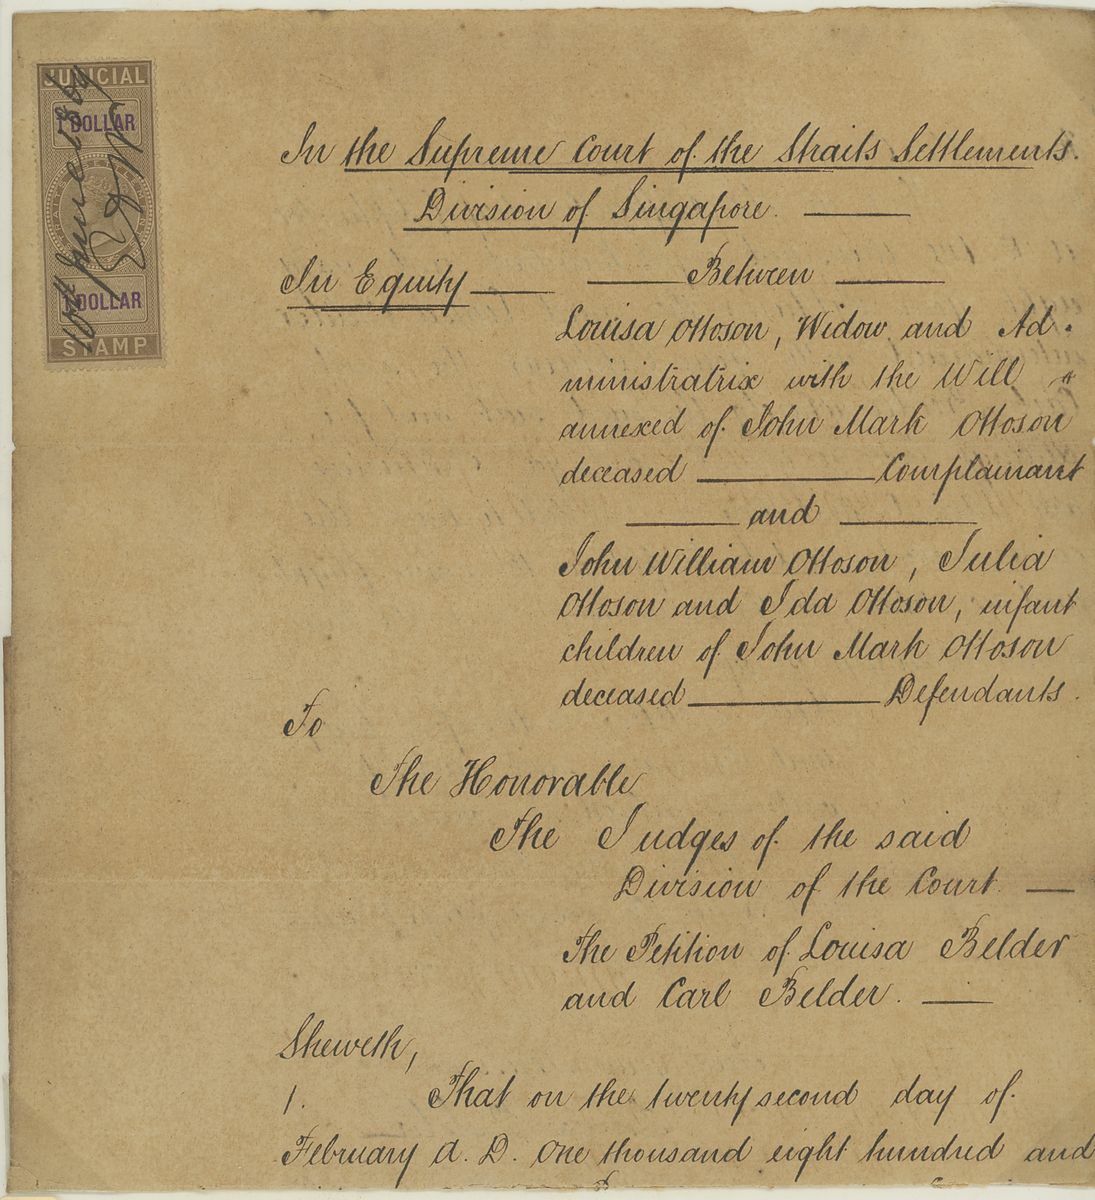 JUDICIAL
1 DOLLAR
1 DOLLAR
STAMP
In the Supreme Court of the Straits Settlements.
Division of Singapore.
In Equity
Between
Louisa Ottoson, Widow and Ad-
ministratrix with the Will
annexed of John Mark Ottoson
deceased Complainant
and
John William Ottoson, Julia
Ottoson and Ida Ottoson, infant
children of John Mark Ottoson
deceased Defendants.
To
The Honorable
The Judges of the said
Division of the Court.
The Petition of Louisa Belder
and Carl Belder.
Sheweth,
1. That on the twenty second day of
February A. D. One thousand eight hundred and